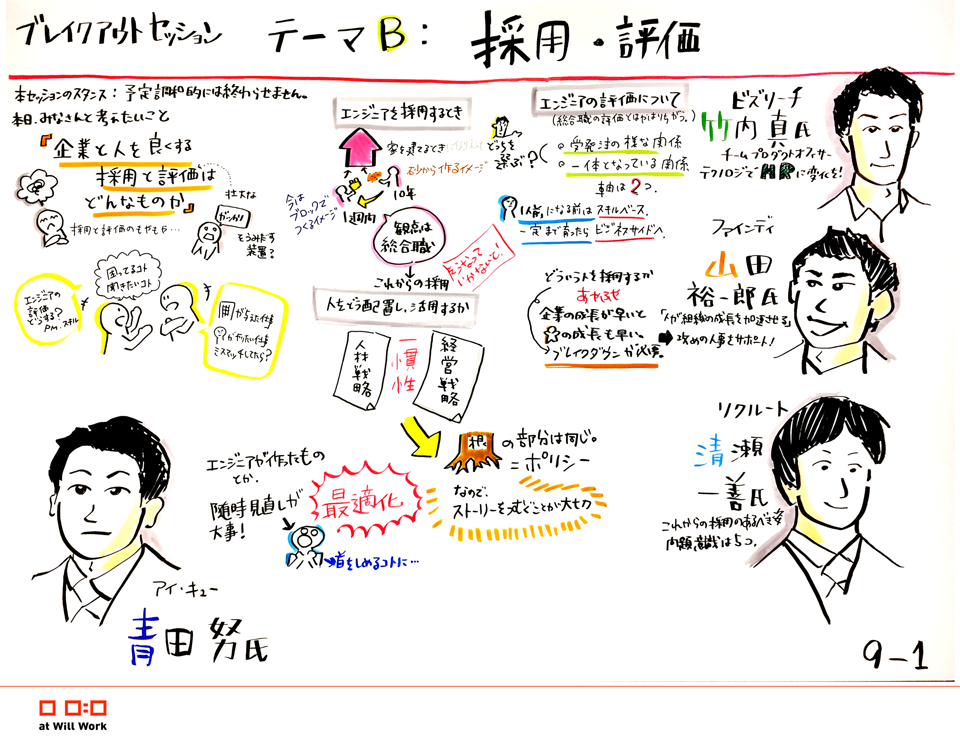 ブレイクアウトセッション テーマB: 採用・評価
本セッションのスタンス: 予定調和的には終わらせません。
本日、みなさんと考えたいこと
『企業と人を良くする
採用と評価は
どんなものか』
採用と評価のモヤモヤ…
壮大な
ガッカリ
をうみだす
装置?
困ってるコト
聞きたいコト
エンジニアの
評価
どうする?
PM、スキル
が与えた仕事
がやりたい仕事
ミスマッチしてたら?
エンジニアを採用するとき
家を建てるとき
石から作るイメージ
10年
今は
ブロックで
つくるイメージ
1週間
どっちを
選ぶ?
観点は
総合職
これからの採用
人をどう配置し、活用するか
人材戦略
一慣性
経営戦略
根 の部分は同じ。
=ポリシー
なので、
ストーリーを
ことが大切
エンジニアの評価について
(総合職の評価とはやはりちがう。)
受発注の様な関係
一体となっている関係
軸は2つ。
1人前になる前はスキルベース。
一定まで育ったらビジネスサイドへ。
どういう人を採用するか
あわせ
企業の成長が早いと
の成長も早い。
ブレイクダウンが必要。
エンジニアが作ったもの
とか、
随時見直しが
大事!
最適化
首をしめるコトに…
ビズリーチ
竹内 真氏
チームプロダクトオフィサー
テクノロジで HR に変化を!
ファインディ
山田
裕一朗氏
「人が組織の成長を加速させる」
攻めの人事をサポート!
リクルート
清瀬
一善氏
これからの採用のあるべき姿
問題意識は5つ。
アイ・キュー
青田 努氏
9-1
at Will Work